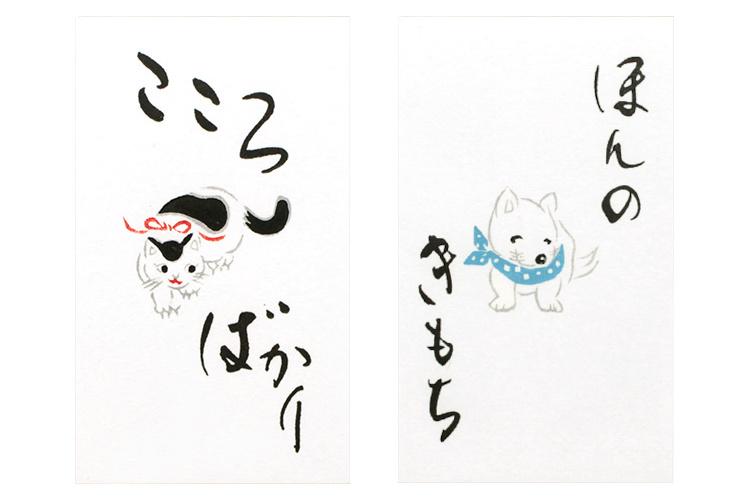 こころ
ばかり
ほんの
きもち